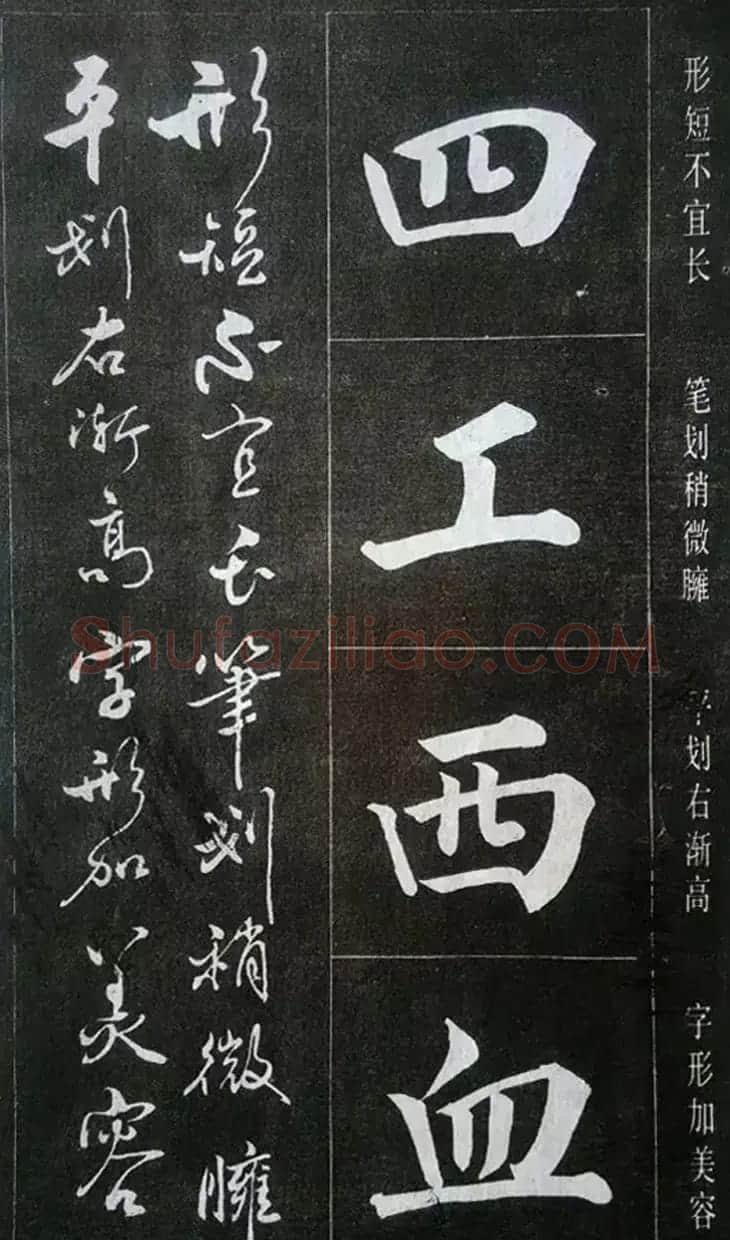 形短不宜长 笔划稍微臃 平划右渐高 字形加美容
四工西血
形短不宜长筆划稍微臃
平划右渐高字形加美容
Shufaziliao.COM